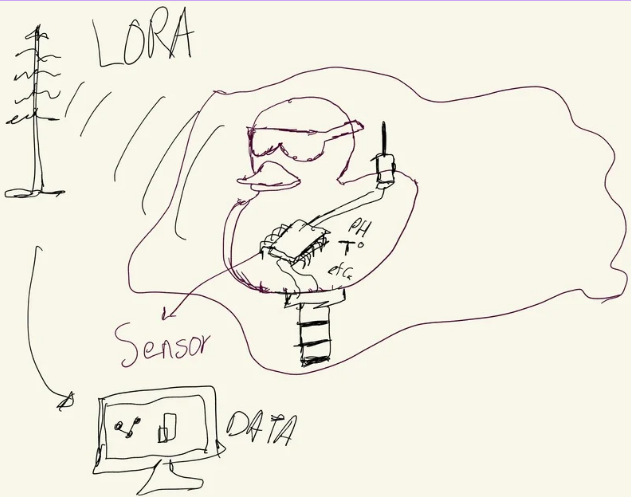 LORA
PH
T°
etc
Sensor
DATA